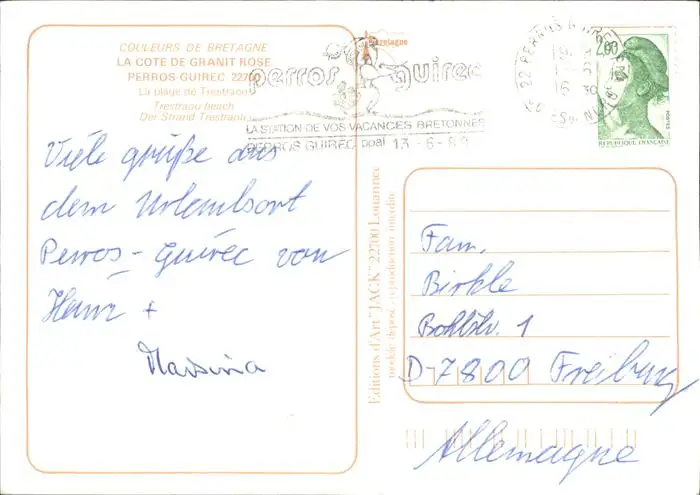 COULEURS DE BRETAGNE
LA COTE DE GRANIT ROSE
PERROS-GUIREC 22700
La plage de Trestraou
Trestraou beach
Der Strand Trestraou
Bretagne
perros guirec
LA STATION DE VOS VACANCES BRETONNES
PERROS GUIREC ppal 13 -6-89
22 PERROS GUIREC
2,00
POSTES
REPUBLIQUE FRANÇAISE
Viele grüße aus
dem Urlaubsort
Perros-Guirec von
Heinz +
Editions d'Art "JACK" 22700 Louannec
modèle déposé - reproduction interdite
Fam.
Birkle
Bohlstr. 1
D-7800 Freiburg
Allemagne